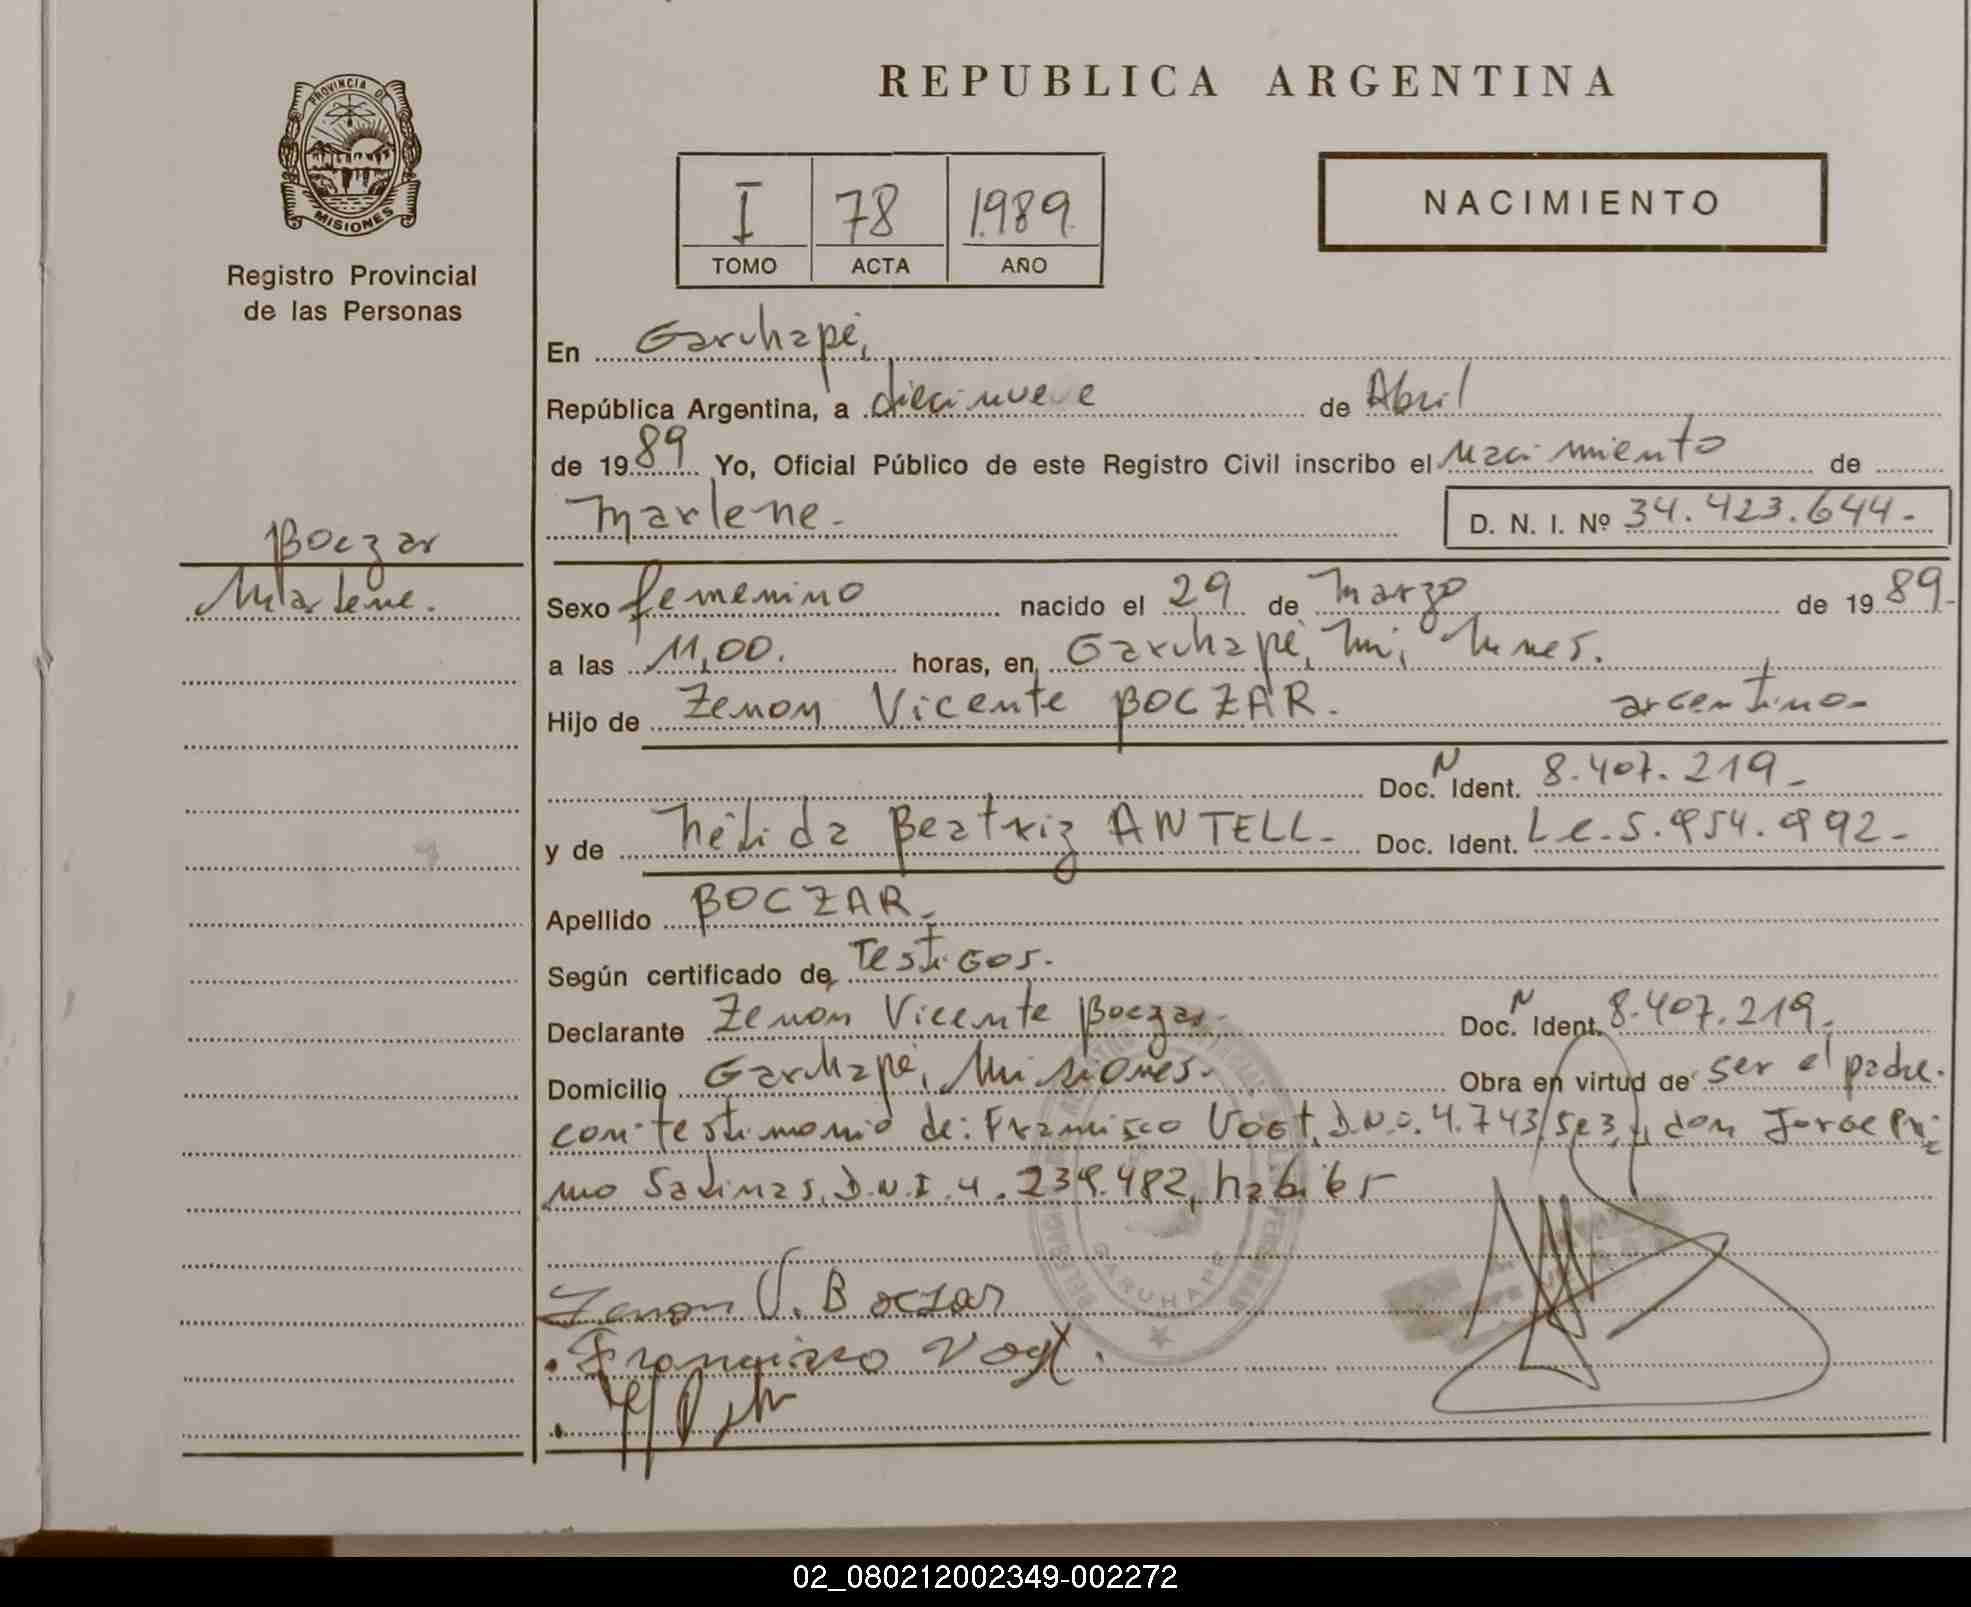 PROVINCIA DE
MISIONES
Registro Provincial
de las Personas
Boczar
Marlene.
REPUBLICA ARGENTINA
I 78 1.989.
TOMO ACTA AÑO
NACIMIENTO
En Garuhapé,
República Argentina, a diecinueve de Abril
de 19 89 Yo, Oficial Público de este Registro Civil inscribo el nacimiento de
Marlene.- D. N. I. Nº 34.423.644.-
Sexo femenino nacido el 29 de Marzo de 19 89.-
a las 11,00. horas, en Garuhapé,
Hijo de Zenon Vicente BOCZAR. argentino.-
Doc. N Ident. 8.407.219.-
y de Nélida Beatriz ANTELL.- Doc. Ident. L.C. 5.954.992.-
Apellido BOCZAR.-
Según certificado de Testigos.-
Declarante Zenon Vicente Boczar.- Doc. N Ident. 8.407.219.-
Domicilio Garuhapé, Misiones.- Obra en virtud de ser el padre.
con testimonio de: Francisco Vogt, D.N.I. 4.743. y don Jorge Pri=
mo Salinas, D.N.I. 4.239.482, habiles
GARUHAPE
Zenon V. Boczar
Francisco Vogt.
02_080212002349-002272